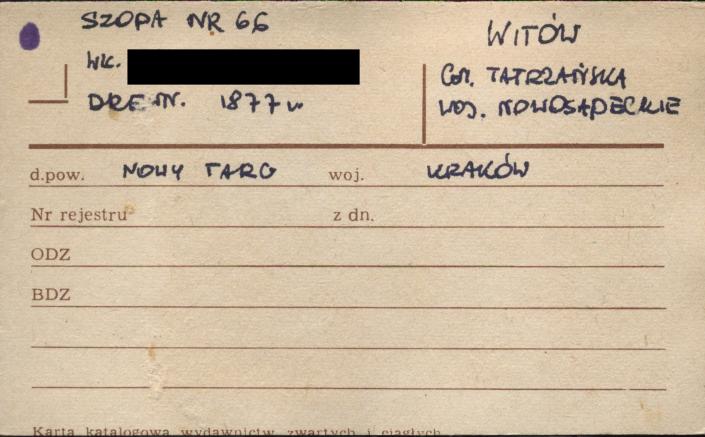 SZOPA NR 66
WŁ.
DREWN. 1877 w.
WITÓW
GM. TATRZAŃSKA
WOJ. NOWOSĄDECKIE
d.pow. NOWY TARG woj. KRAKÓW
Nr rejestru z dn.
ODZ
BDZ
Karta katalogowa wydawnictw zwartych i ciągłych